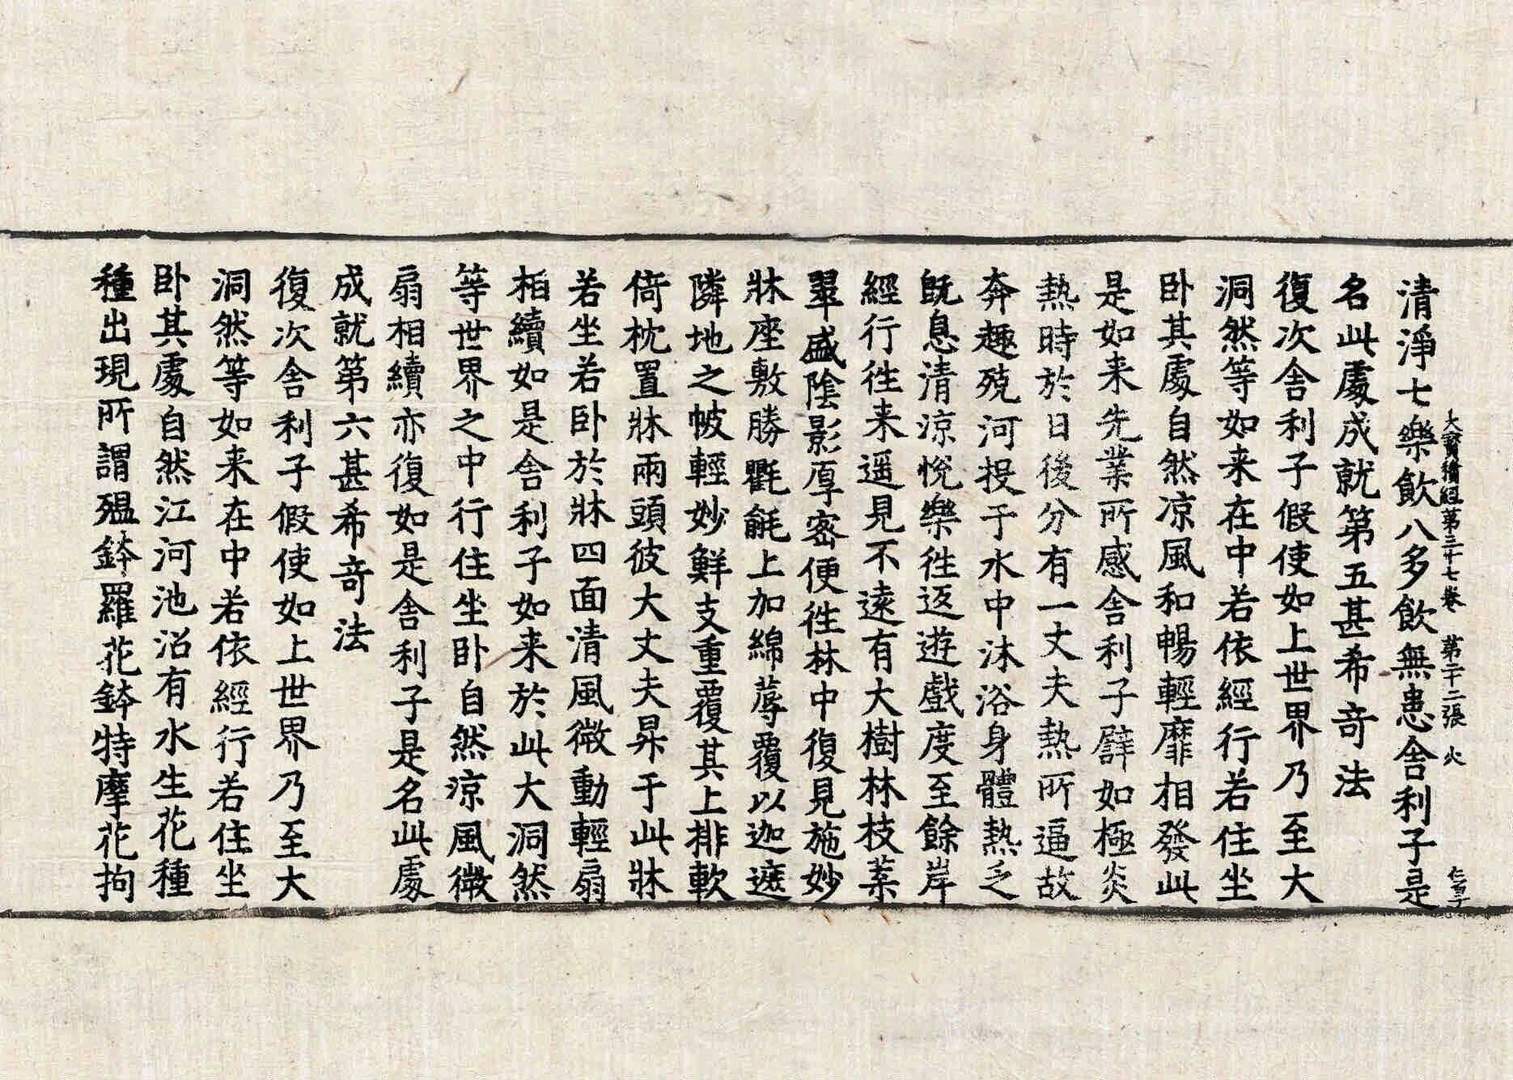 清淨七樂飲八多飲無患舍利子是
大寶積經第三十七卷 第二十二張 火
名此處成就第五甚希奇法
復次舍利子假使如上世界乃至大
洞然等如来在中若依經行若住坐
卧其處自然涼風和暢輕靡相發此
是如来先業所感舍利子譬如極炎
熱時於日後分有一丈夫熱所逼故
奔趣殑河投于水中沐浴身體熱乏
既息清涼悅樂徃返遊戲度至餘岸
經行徃来遥見不遠有大樹林枝葉
翠盛陰影厚密便徃林中復見施妙
牀座敷勝氍毹上加綿蓐覆以迦遮
隣地之帔輕妙鮮支重覆其上排軟
倚枕置牀兩頭彼大丈夫昇于此牀
若坐若卧於牀四面清風微動輕扇
相續如是舍利子如来於此大洞然
等世界之中行住坐卧自然涼風微
扇相續亦復如是舍利子是名此處
成就第六甚希奇法
復次舍利子假使如上世界乃至大
洞然等如来在中若依經行若住坐
卧其處自然江河池沼有水生花種
種出現所謂殟鉢羅花鉢特摩花拘